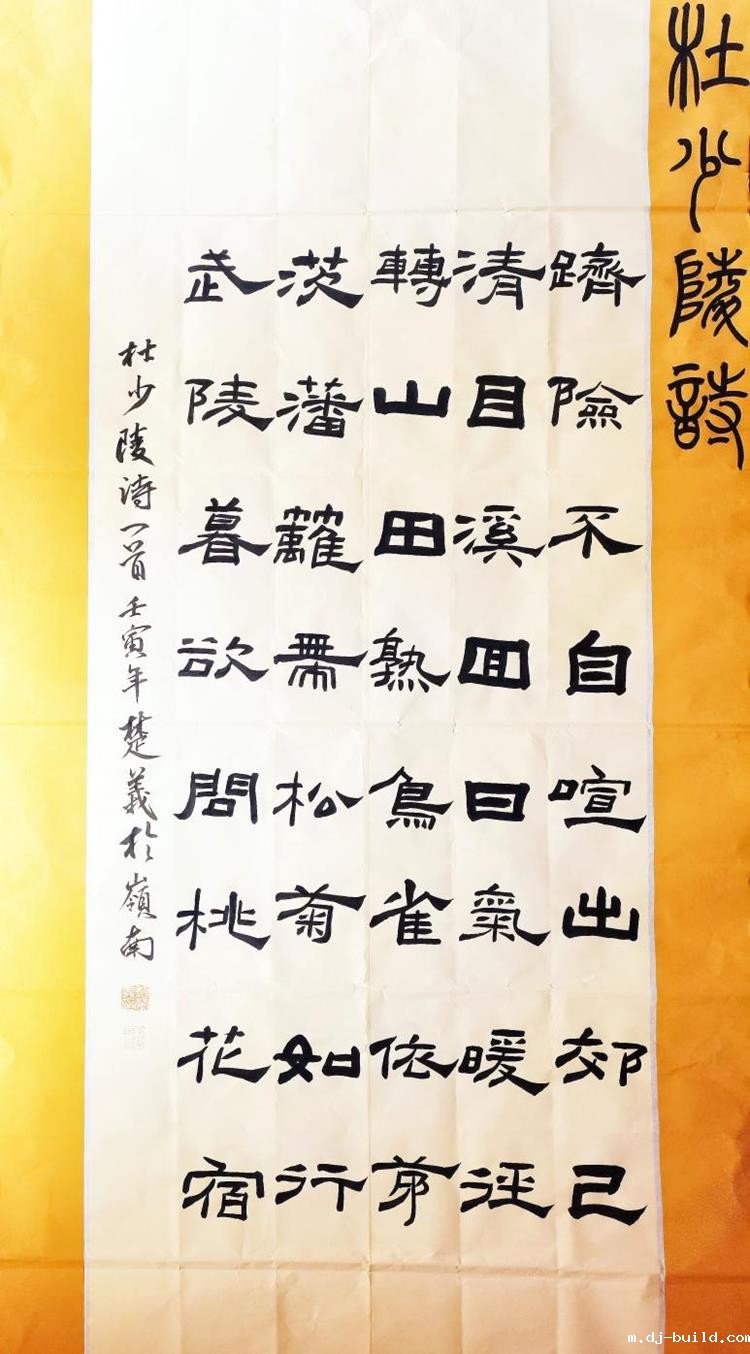 杜少陵詩
躋險不自喧出郊己
清目溪囬日氣暖徑
轉山田熟鳥雀依茅
茨藩籬帶松菊如行
武陵暮欲問桃花宿
杜少陵诗一首壬寅年楚義於嶺南
m.dj-build.com